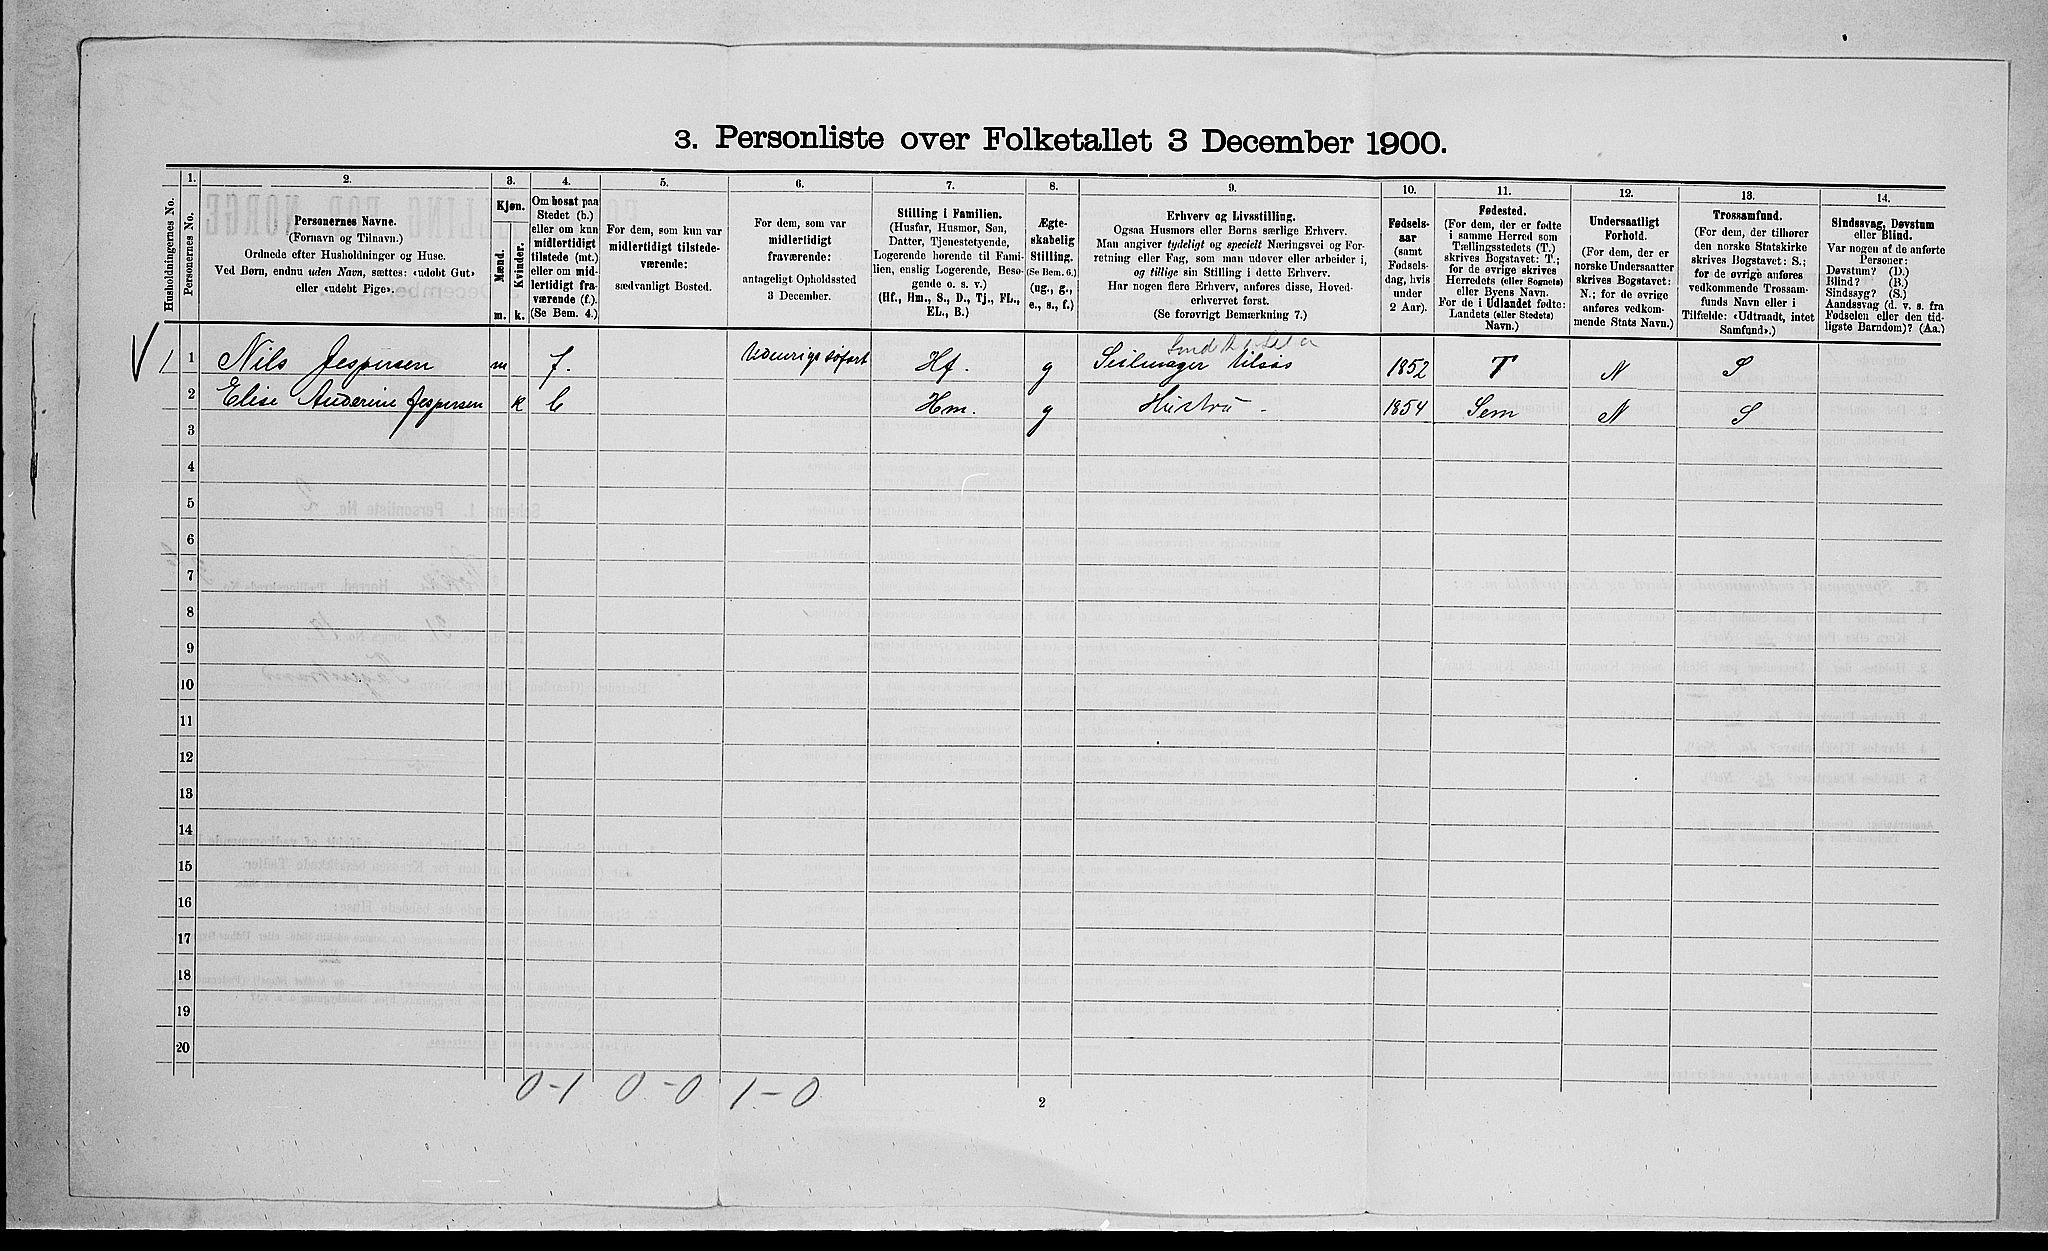 3. Personliste over Folketallet 3 December 1900.
1.
Husholdningernes No.
Personernes No.
2.
Personernes Navne.
(Fornavn og Tilnavn.)
Ordnede efter Husholdninger og Huse.
Ved Børn, endnu uden Navn, sættes: «udøbt Gut»
eller «udøbt Pige».
3.
Kjøn.
Mænd.
Kvinder.
m.
k.
4.
Om bosat paa
Stedet (b.)
eller om kun
midlertidigt
tilstede (mt.)
eller om mid-
lertidigt fra-
værende (f.).
(Se Bem. 4.)
5.
For dem, som kun var
midlertidigt tilstede-
værende:
sædvanligt Bosted.
6.
For dem, som var
midlertidigt
fraværende:
antageligt Opholdssted
3 December.
7.
Stilling i Familien.
(Husfar, Husmor, Søn,
Datter, Tjenestetyende,
Logerende hørende til Fami-
lien, enslig Logerende, Besø-
gende o. s. v.)
(Hf., Hm., S., D., Tj., FL.,
EL., B.)
8.
Ægte-
skabelig
Stilling.
(Se Bem. 6.)
(ug., g.,
e., s., f.)
9.
Erhverv og Livsstilling.
Ogsaa Husmors eller Børns særlige Erhverv.
Man angiver tydeligt og specielt Næringsvei og For-
retning eller Fag, som man udover eller arbeider i,
og tillige sin Stilling i dette Erhverv.
Har nogen flere Erhverv, anføres disse, Hoved-
erhvervet først.
(Se forøvrigt Bemærkning 7.)
10.
Fødsels-
aar
(samt
Fødsels-
dag, hvis
under
2 Aar).
11.
Fødested.
(For dem, der er fødte
i samme Herred som
Tællingsstedets (T.)
skrives Bogstavet: T.;
for de øvrige skrives
Herredets (eller Sognets)
eller Byens Navn.
For de i Udlandet fødte:
Landets (eller Stedets)
Navn.)
12.
Undersaatligt
Forhold.
(For dem, der er
norske Undersaatter
skrives Bogstavet:
N.; for de øvrige
anføres vedkom-
mende Stats Navn.)
13.
Trossamfund.
(For dem, der tilhører
den norske Statskirke
skrives Bogstavet: S.;
for de øvrige anføres
vedkommende Trossam-
funds Navn eller i
Tilfælde: «Udtraadt, intet
Samfund».)
14.
Sindssvag, Døvstum
eller Blind.
Var nogen af de anførte
Personer:
Døvstum? (D.)
Blind? (B.)
Sindssyg? (S.)
Aandssvag (d. v. s. fra
Fødselen eller den tid-
ligste Barndom)? (Aa.)
V 1 1 Nils Jespersen m f. Udenrigs søfart Hf. g Seilmager tilsøs 1852 T N S
2 Elise Anderine Jespersen k b Hm. g Hustru - 1854 Sem N S
3
4
5
6
7
8
9
10
11
12
13
14
15
16
17
18
19
20
0-1 0-0 1-0
2